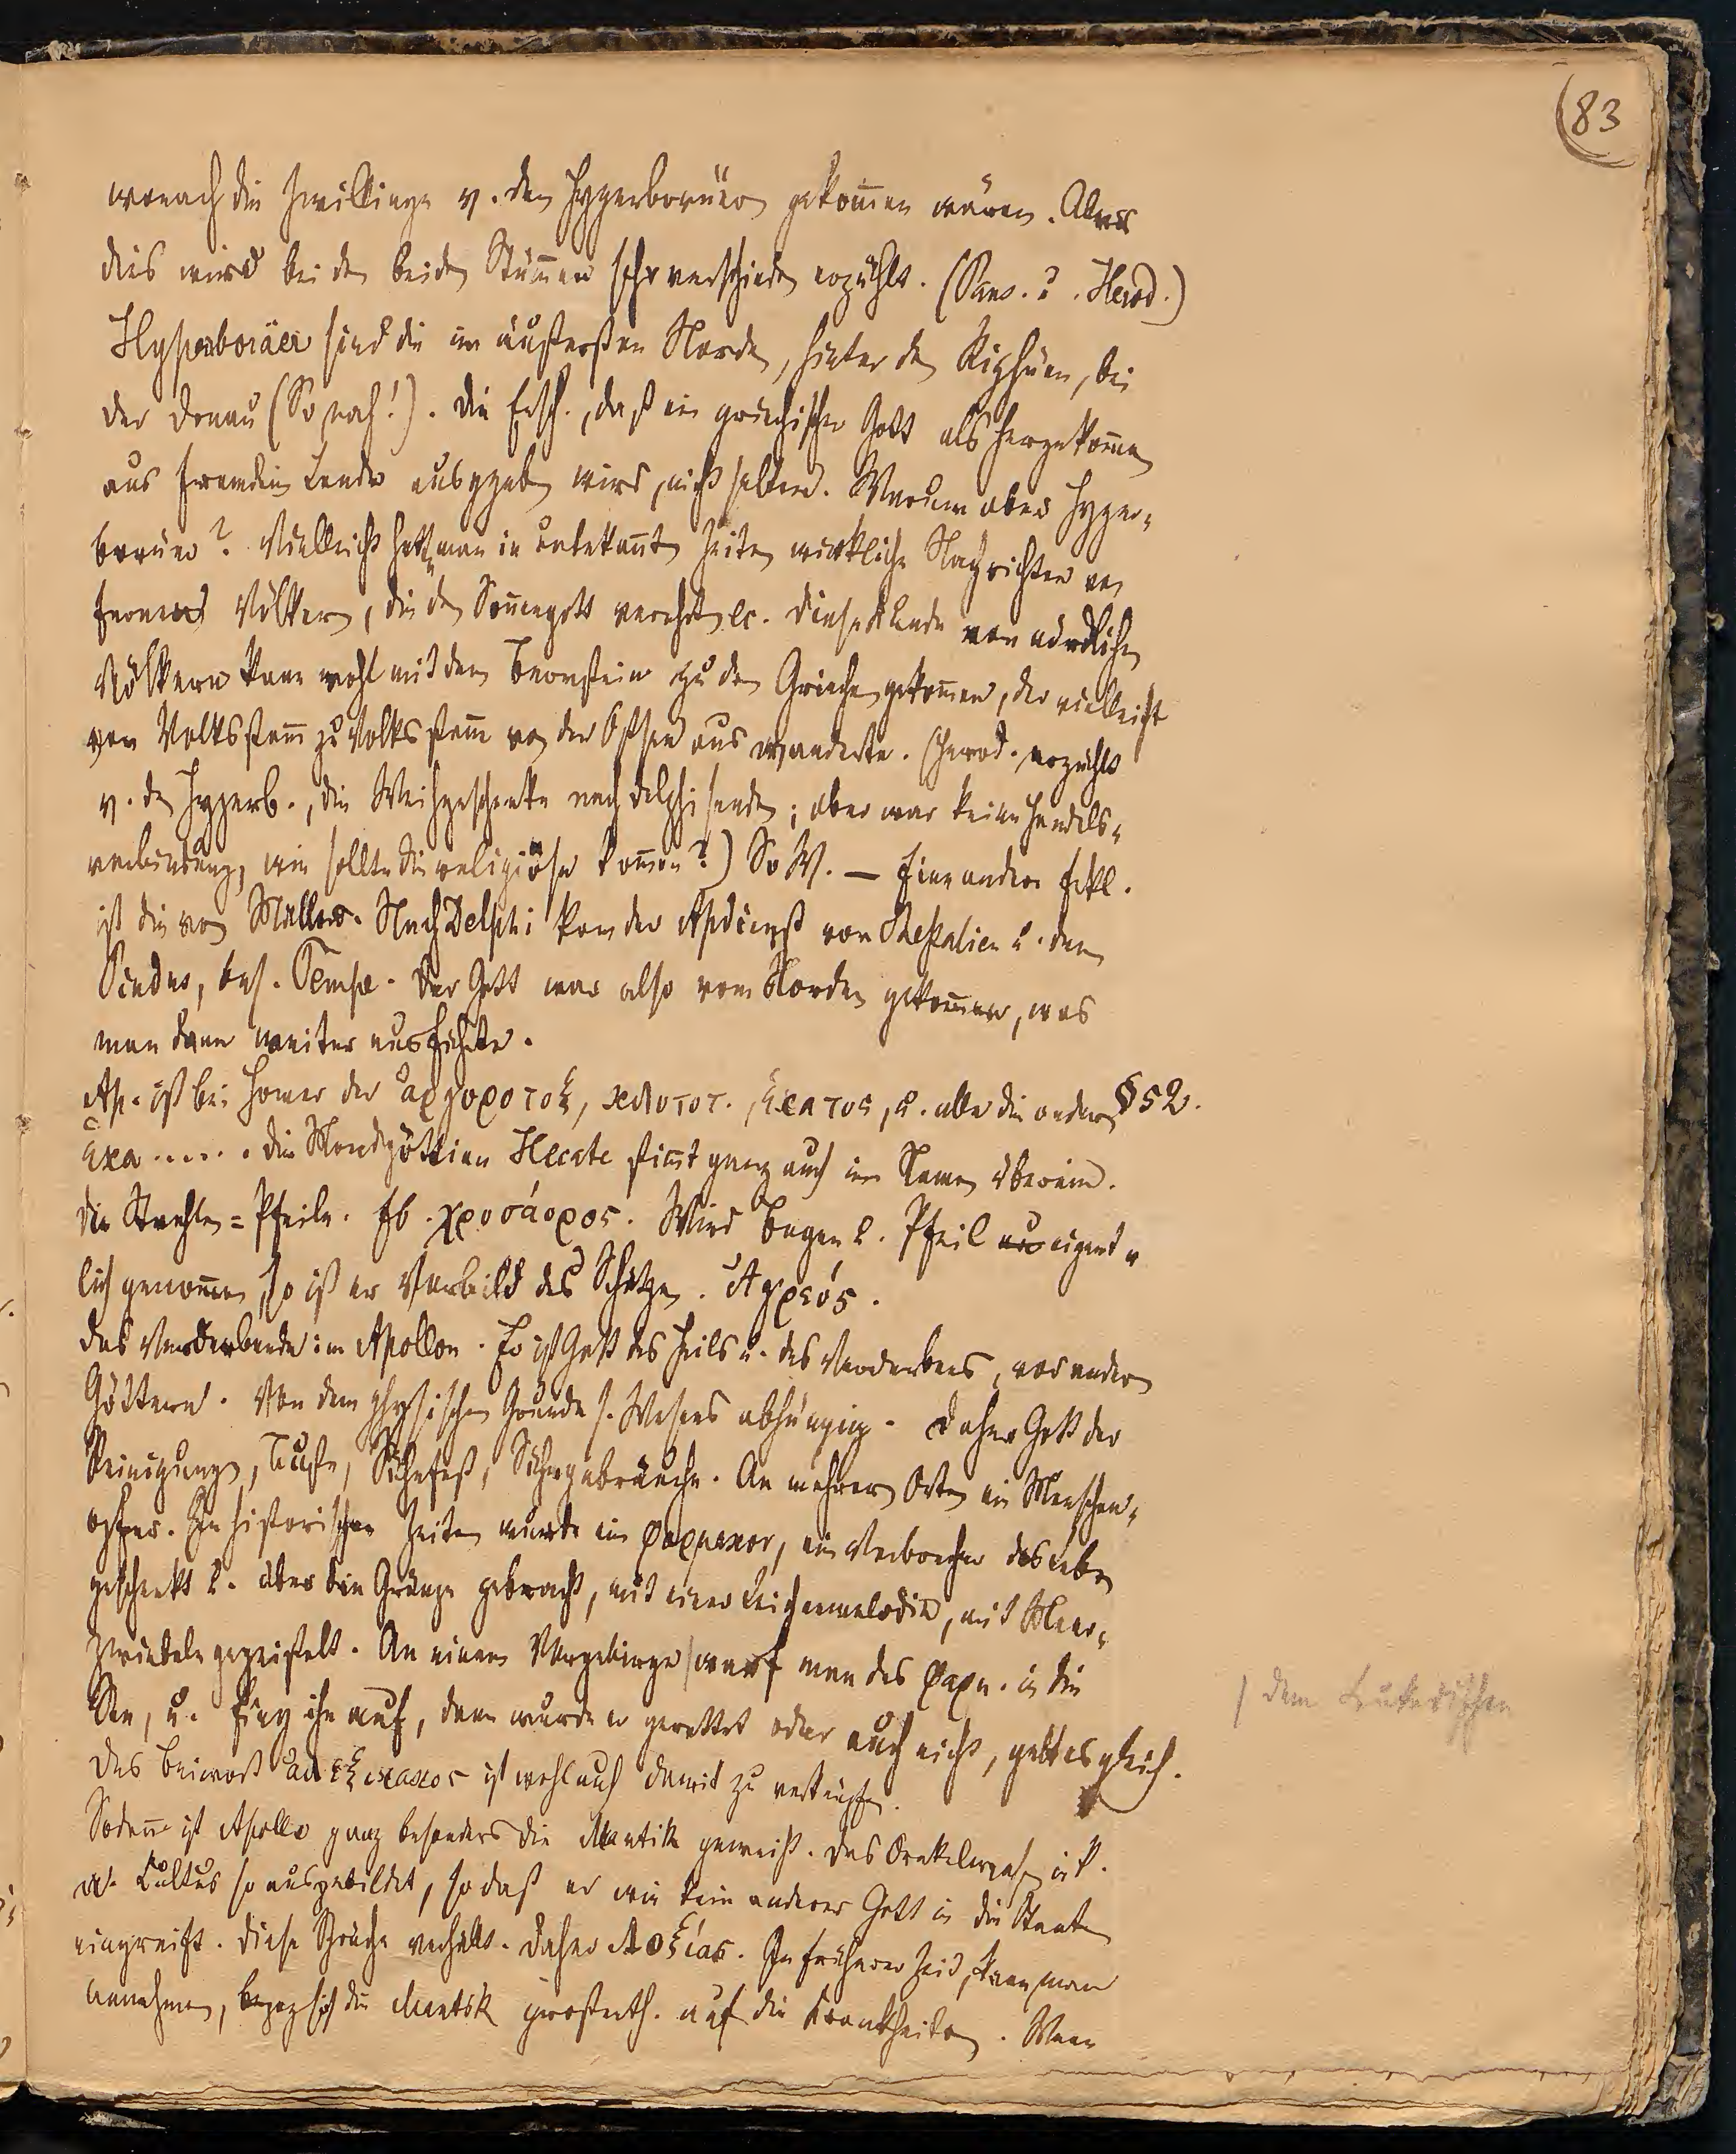 (83
wonach die Zwillinge v. den Hyperboräern gekom̅en wären. Aber
dies wird bei den beiden Stäm̅en sehr verschieden erzählt. (Paus. u. Herod.)
Hyperboräer sind die im äußersten Norden, hinter den Riphäen, bei
der Donau (So nah!). Die Ersch., daß ein griechischer Gott als hergekom̅en
aus fremdem Lande ausgegeben wird, nicht selten. Warum aber Hyper-
boräer? Vielleicht hatte man in unbekannten Zeiten wirkliche Nachrichten von
fernen Völkern, die den Son̅engott verehrten etc. Diese Kunde von nördlichen
Völkern kann wohl mit dem Bernstein zu den Griechen gekom̅en, der vielleicht
von Volksstam̅ zu Volksstam̅ von der Ostsee aus wanderte. (Herod. erzählt
v. den Hyperb., die Weihgeschenke nach Delphi senden; aber war keine Handels-
verbindung, wie sollte die religiöse kom̅en?) So W. — Eine andere Erkl.
ist die von Müller. Nach Delphi kam der Apdienst von Thessalien u. dem
Pindus, bes. Tempe. Der Gott war also vom Norden gekom̅en, was
man dann weiter ausführte.
Ap. ist bei Homer der ἀργυροτοξ, κλυτοτ., ἕκατος, u. alle die andern §52.
ἑκα..... Die Mondgöttinn Hecate stim̅t ganz auch im Namen überein.
Die Strahlen = Pfeile. Eb. χρυσάορος. Wird Bogen u. Pfeil eigent-
lich genom̅en, so ist er Vorbild des Schützen. Ἀγρεύς.
Das Verderbende im Apollon. Er ist Gott des Heils u. des Verderbens, vor andern
Göttern. Von dem physischen Grunde s. Wesens abhängig. Daher Gott der
Reinigungen, Buße, Sühnfest, Sühngebräuche. An mehreren Orten ein Menschen-
opfer. In historischen Zeiten wurde ein φαρμακος, ein Verbrecher das Leben
geschenkt u. über die Gränze gebracht, mit einer Leichenmelodie, mit Meer-
zwiebeln gegeißelt. An einem Vorgebirge / warf man des φαρμ. in die
See, u. fing ihn auf, dann wurde er gerettet oder auch nicht, galt es gleich.
/ dem Leukadischen
Das Beiwort ἀλεξικακος ist wohl auch damit zu verknüpfen.
Sodann ist Apollo ganz besonders die Mantik geweiht. Das Orakelwesen ist
Cultus so ausgebildet, so daß er wie kein anderer Gott in die Staaten
eingreift. Diese Sprüche verhüllt. Daher Λοξίας. In früherer Zeit, kann man
annehmen, bezog sich die Mantik großenth. auf die Krankheiten. Wenn